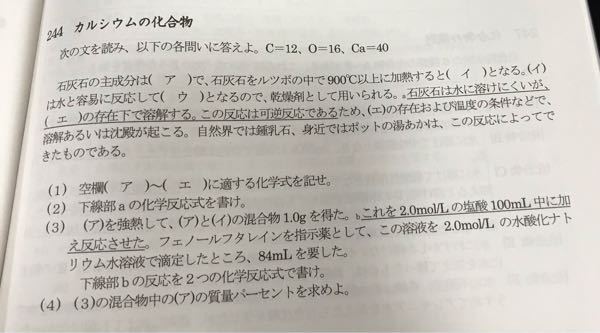 244 カルシウムの化合物
次の文を読み、以下の各問いに答えよ。C=12、O=16、Ca=40
石灰石の主成分は( ア )で、石灰石をルツボの中で 900℃以上に加熱すると( イ )となる。(イ)
は水と容易に反応して( ウ )となるので、乾燥剤として用いられる。a石灰石は水に溶けにくいが、
( エ )の存在下で溶解する。この反応は可逆反応であるため、(エ)の存在および温度の条件などで、
溶解あるいは沈殿が起こる。自然界では鍾乳石、身近ではポットの湯あかは、この反応によってで
きたものである。
(1) 空欄( ア )~( エ )に適する化学式を記せ。
(2) 下線部 a の化学反応式を書け。
(3) (ア)を強熱して、(ア)と(イ)の混合物 1.0g を得た。bこれを 2.0mol/L の塩酸 100mL 中に加
え反応させた。フェノールフタレインを指示薬として、この溶液を 2.0mol/L の水酸化ナト
リウム水溶液で滴定したところ、84mL を要した。
下線部 b の反応を2つの化学反応式で書け。
(4) (3)の混合物中の(ア)の質量パーセントを求めよ。